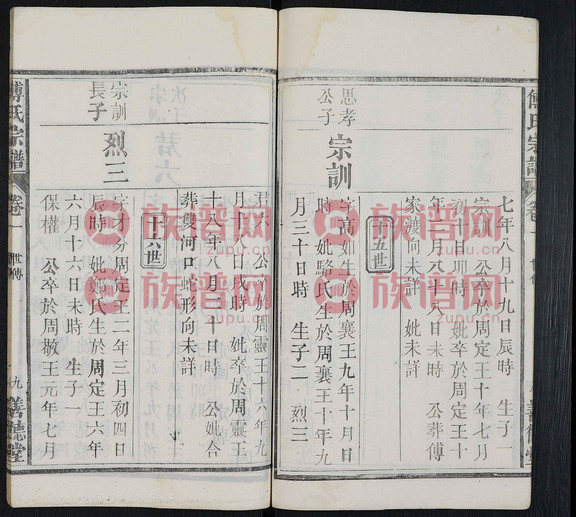 傅氏宗譜
卷一
世傳
七年八月十九日辰時 生子一
宗訓 公卒於周定王十年七月
初十日卯時 妣卒於周定王十
年二月十六日未時 公葬傅
家渡向未詳 妣未詳
十五世
思孝
公子
宗訓
字萬如生於周襄王九年十月日
時妣駱氏生於周襄王十年九
月三十日時 生子二 烈三
君六 公卒於周靈王十六年九
月十八日戌時 妣卒於周靈王
十八年八月二十日時 公妣合
葬雙河口蛇形向未詳
十六世
宗訓
長子
烈三
字才分周定王二年三月初四日
辰時 妣鄭氏生於周定王六年
六月十六日未時 生子一
保權 公卒於周敬王元年七月
傅氏宗譜
卷一
世傳
九
善德堂
族谱网
zupu.cn